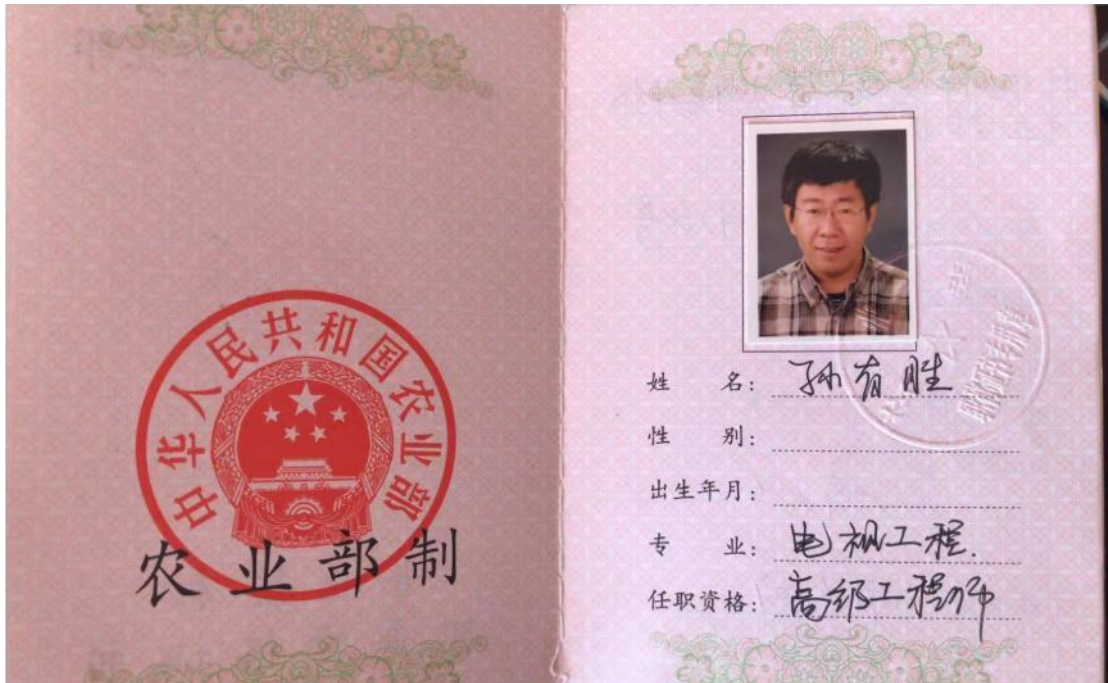 中华人民共和国农业部
农业部制
姓名：孙有胜
性别：
出生年月：
专业：电视工程.
任职资格：高级工程师